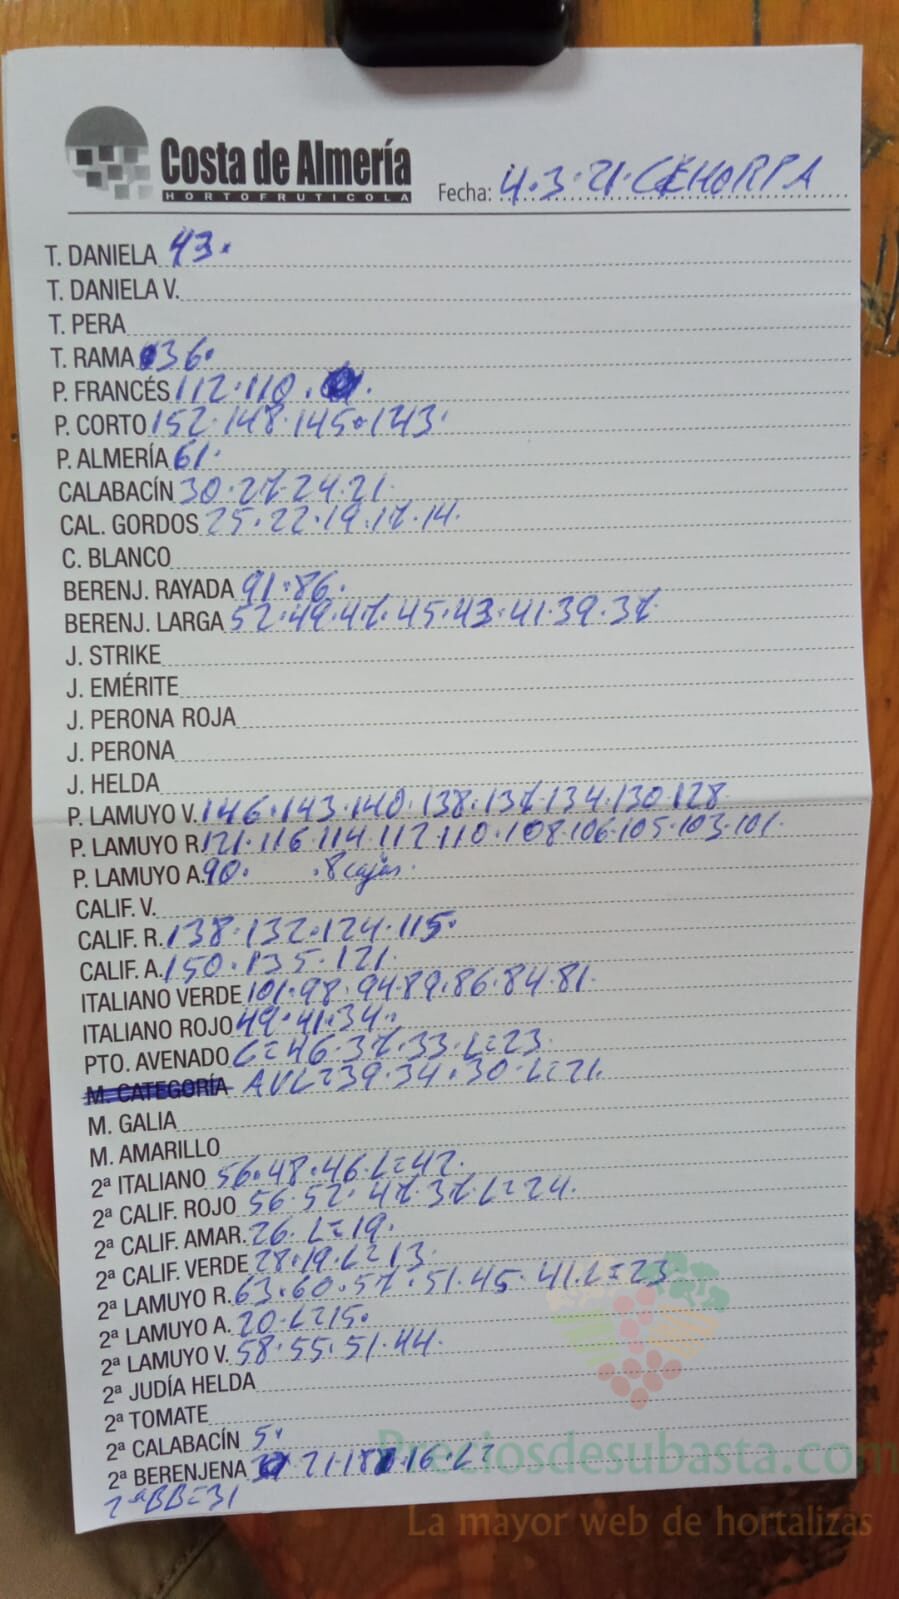 Costa de Almería
HORTOFRUTICOLA
Fecha: 4.3.21. CEHORPA
T. DANIELA 43.
T. DANIELA V.
T. PERA
T. RAMA 36.
P. FRANCÉS 112.110.
P. CORTO 152.148.145.143.
P. ALMERÍA 61.
CALABACÍN 30.27.24.21.
CAL. GORDOS 25.22.19.17.14.
C. BLANCO
BERENJ. RAYADA 91.86.
BERENJ. LARGA 52.49.47.45.43.41.39.37.
J. STRIKE
J. EMÉRITE
J. PERONA ROJA
J. PERONA
J. HELDA
P. LAMUYO V. 146.143.140.138.137.134.130.128.
P. LAMUYO R. 121.116.114.112.110.108.106.105.103.101.
P. LAMUYO A. 90. .8 cajas.
CALIF. V.
CALIF. R. 138.132.124.115.
CALIF. A. 150.135.121.
ITALIANO VERDE 101.98.94.89.86.84.81.
ITALIANO ROJO 49.41.34.
PTO. AVENADO C=46.37.33.L=23.
M. CATEGORÍA AVL=39.34.30.L=21.
M. GALIA
M. AMARILLO
2ª ITALIANO 56.48.46.L=42.
2ª CALIF. ROJO 56.52.47.37.L=24.
2ª CALIF. AMAR. 26.L=19.
2ª CALIF. VERDE 28.19.L=13.
2ª LAMUYO R. 63.60.57.51.45.41.L=23.
2ª LAMUYO A. 20.L=15.
2ª LAMUYO V. 58.55.51.44.
2ª JUDÍA HELDA
2ª TOMATE
2ª CALABACÍN 5.
2ª BERENJENA 21.18.16.L=
2ªBB=31
Preciosdesubasta.com
La mayor web de hortalizas